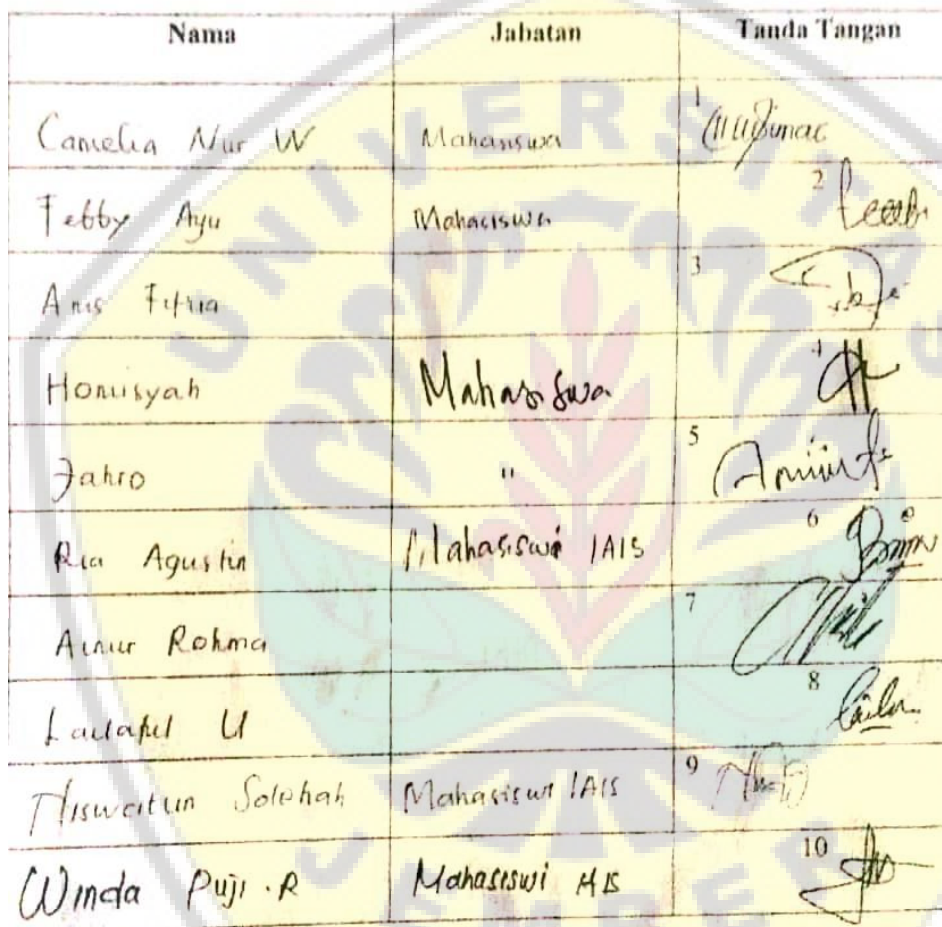 Nama Jabatan Tanda Tangan
Camelia Nur W Mahasiswa 1
Febby Ayu Mahasiswa 2
Anis Fitria 3
Homisyah Mahasiswa 4
Zahro " 5
Ria Agustin Mahasiswi IAIS 6
Ainur Rohma 7
Lailatul U 8 Laila
Niswatun Solehah Mahasiswi IAIS 9
Winda Puji .R Mahasiswi 10
UNIVERSITAS
JEMBER